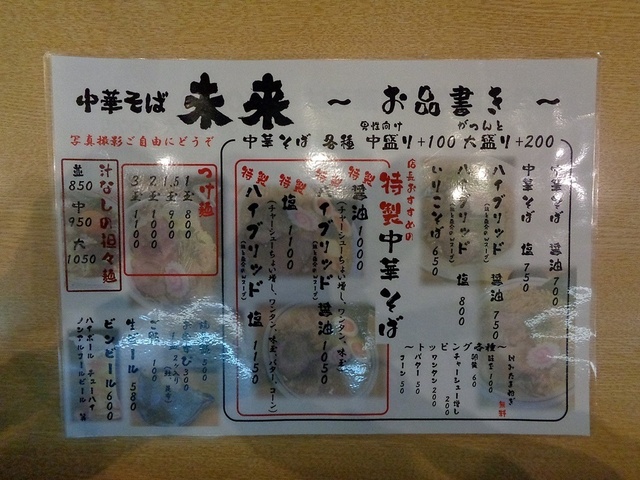 中華そば 未来 ～ お品書き ～
写真撮影ご自由にどうぞ
中華そば 各種
男性向け
中盛り+100
がつんと
大盛り+200
中華そば 醤油 700
中華そば 塩 750
ハイブリッド 醤油 750
ハイブリッド 塩 800
いりこそば 650
店長おすすめの
特製中華そば
特製 醤油 1000
特製 ハイブリッド 醤油 1050
特製 塩 1100
特製 ハイブリッド 塩 1150
～トッピング各種～
無料
味玉 100
卵黄 60
チャーシュー増し 200
ワンタン 200
バター 50
コーン 50
つけ麺
1玉 800
1.5玉 900
2玉 1000
3玉 1100
汁なしの担々麺
並 850
中 950
大 1050
おむすび 300
2ヶ入り
ご飯 100
生ビール 580
ビンビール 600
ハイボール チューハイ
ノンアルコールビール 等